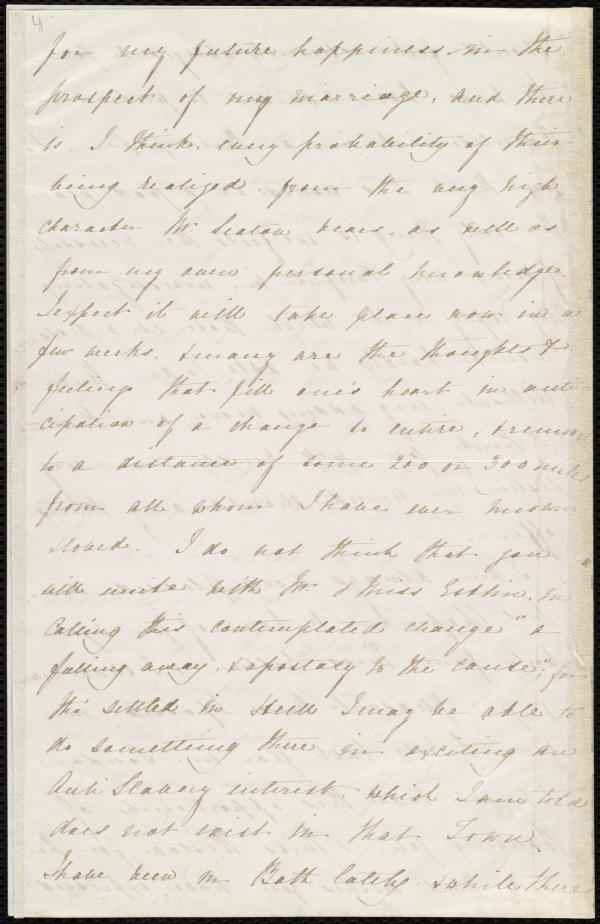 4
for my future happiness in the
prospect of my marriage, and there
is I think, every probability of their
being realized, from the very high
character Mr. Seaton bears, as well as
from my own personal knowledge.
I expect it will take place now in a
few weeks. & many are the thoughts &
feelings that fill one's heart in anti
cipation of a change so entire, & removal
to a distance of some 200 or 300 miles
from all whom I have ever known
& loved. I do not think that you
will unite with Mr. & Miss Estlin, in
calling this contemplated change "a
falling away, & apostacy to the cause", for
tho' settled in Hull I may be able to
do something there in exciting an
Anti Slavery interest, which I am told
does not exist in that Town.
I have been in Bath lately, & while there